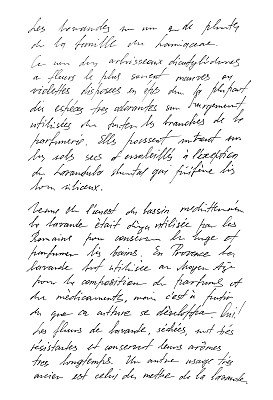 Les lavandes un 2 de plantes
de la famille des lamiaceae.
Ce sont des arbrisseaux dicotylédones
à fleurs le plus souvent mauves ou
violettes disposées en épis dont la plupart
des espèces très odorantes sont largement
utilisées dans toutes les branches de la
parfumerie. Elles poussent surtout sur
les sols secs et ensoleillés à l'exception
de lavandula stoechas qui préfère les
sols siliceux.
Venue de l'ouest du bassin méditerranéen
la lavande était déjà utilisée par les
Romains pour conserver le linge et
parfumer les bains. En Provence la
lavande fut utilisée au Moyen Age
pour la composition de parfums et
de médicaments, mais c'est à partir
du que sa culture se développa.
Les fleurs de lavande, séchées, sont très
résistantes et conservent leurs arômes
très longtemps. Un autre usage très
ancien est celui de mettre de la lavande